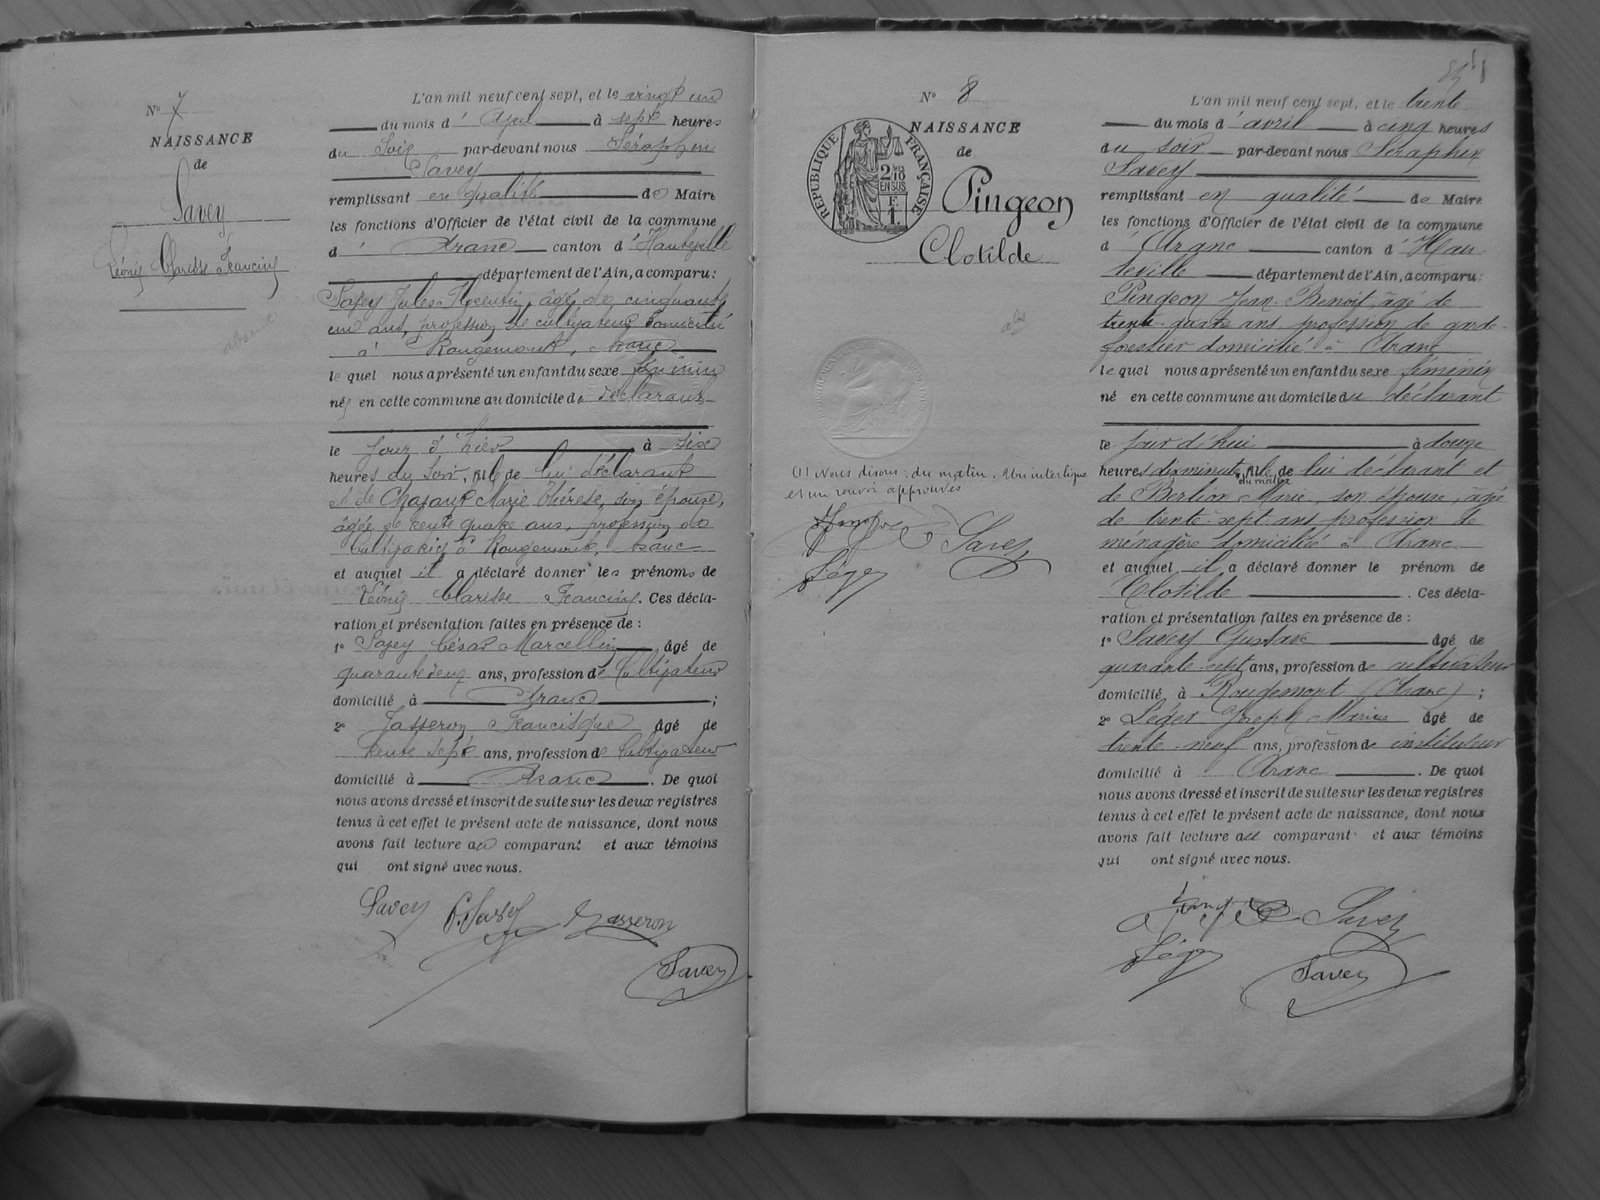 N° 7
NAISSANCE
de
Savey
Léonie Clarisse Francine
L'an mil neuf cent sept, et le vingt un
du mois d' Avril à sept heures
du Soir par-devant nous Séraphin
Savey
remplissant en qualité de Maire
les fonctions d'Officier de l'état civil de la commune
d' Aranc canton d'Hauteville
département de l'Ain, a comparu:
Savey Jules Florentin, âgé de cinquante
un ans, profession de cultivateur domicilié
à Rougemont, Aranc
lequel nous a présenté un enfant du sexe féminin
née en cette commune au domicile du déclarant
le jour d'hier à six
heures du soir, fille de lui déclarant
et de Marie Thérèse, son épouse,
âgée de trente quatre ans, profession de
cultivatrice à Rougemont, Aranc
et auquel il a déclaré donner les prénoms de
Léonie Clarisse Francine. Ces décla-
ration et présentation faites en présence de :
1° Savey César Marcellin âgé de
quarante deux ans, profession de Cultivateur
domicilié à Aranc ;
2° Jasseron Francisque âgé de
trente sept ans, profession de Cultivateur
domicilié à Aranc. De quoi
nous avons dressé et inscrit de suite sur les deux registres
tenus à cet effet le présent acte de naissance, dont nous
avons fait lecture au comparant et aux témoins
qui ont signé avec nous.
Savey C. Savey Jasseron
Savey
N° 8
NAISSANCE
de
Pingeon
Clotilde
RÉPUBLIQUE FRANÇAISE
2/10
EN SUS
F
1.
(1) Nous disons : du matin. Un interligne
et un renvoi approuvés
Savey
Léger
L'an mil neuf cent sept, et le trente
du mois d'avril à cinq heures
du soir par-devant nous Séraphin
Savey
remplissant en qualité de Maire
les fonctions d'Officier de l'état civil de la commune
d'Aranc canton d'Hau
teville département de l'Ain, a comparu:
Pingeon Jean Benoit, âgé de
trente-quatre ans profession de garde-
forestier domicilié à Aranc
lequel nous a présenté un enfant du sexe féminin
né en cette commune au domicile du déclarant
le jour d'hui à douze
heures dix minutes du matin fille de lui déclarant et
de Berlion Marie, son épouse, âgée
de trente-sept ans profession de
ménagère domiciliée à Aranc
et auquel il a déclaré donner le prénom de
Clotilde. Ces décla-
ration et présentation faites en présence de :
1° Savey Gustave âgé de
quarante-sept ans, profession de cultivateur
domicilié à Rougemont (Aranc) ;
2° Léger Joseph Marius âgé de
trente-neuf ans, profession de instituteur
domicilié à Aranc. De quoi
nous avons dressé et inscrit de suite sur les deux registres
tenus à cet effet le présent acte de naissance, dont nous
avons fait lecture au comparant et aux témoins
qui ont signé avec nous.
Savey
Léger
Savey